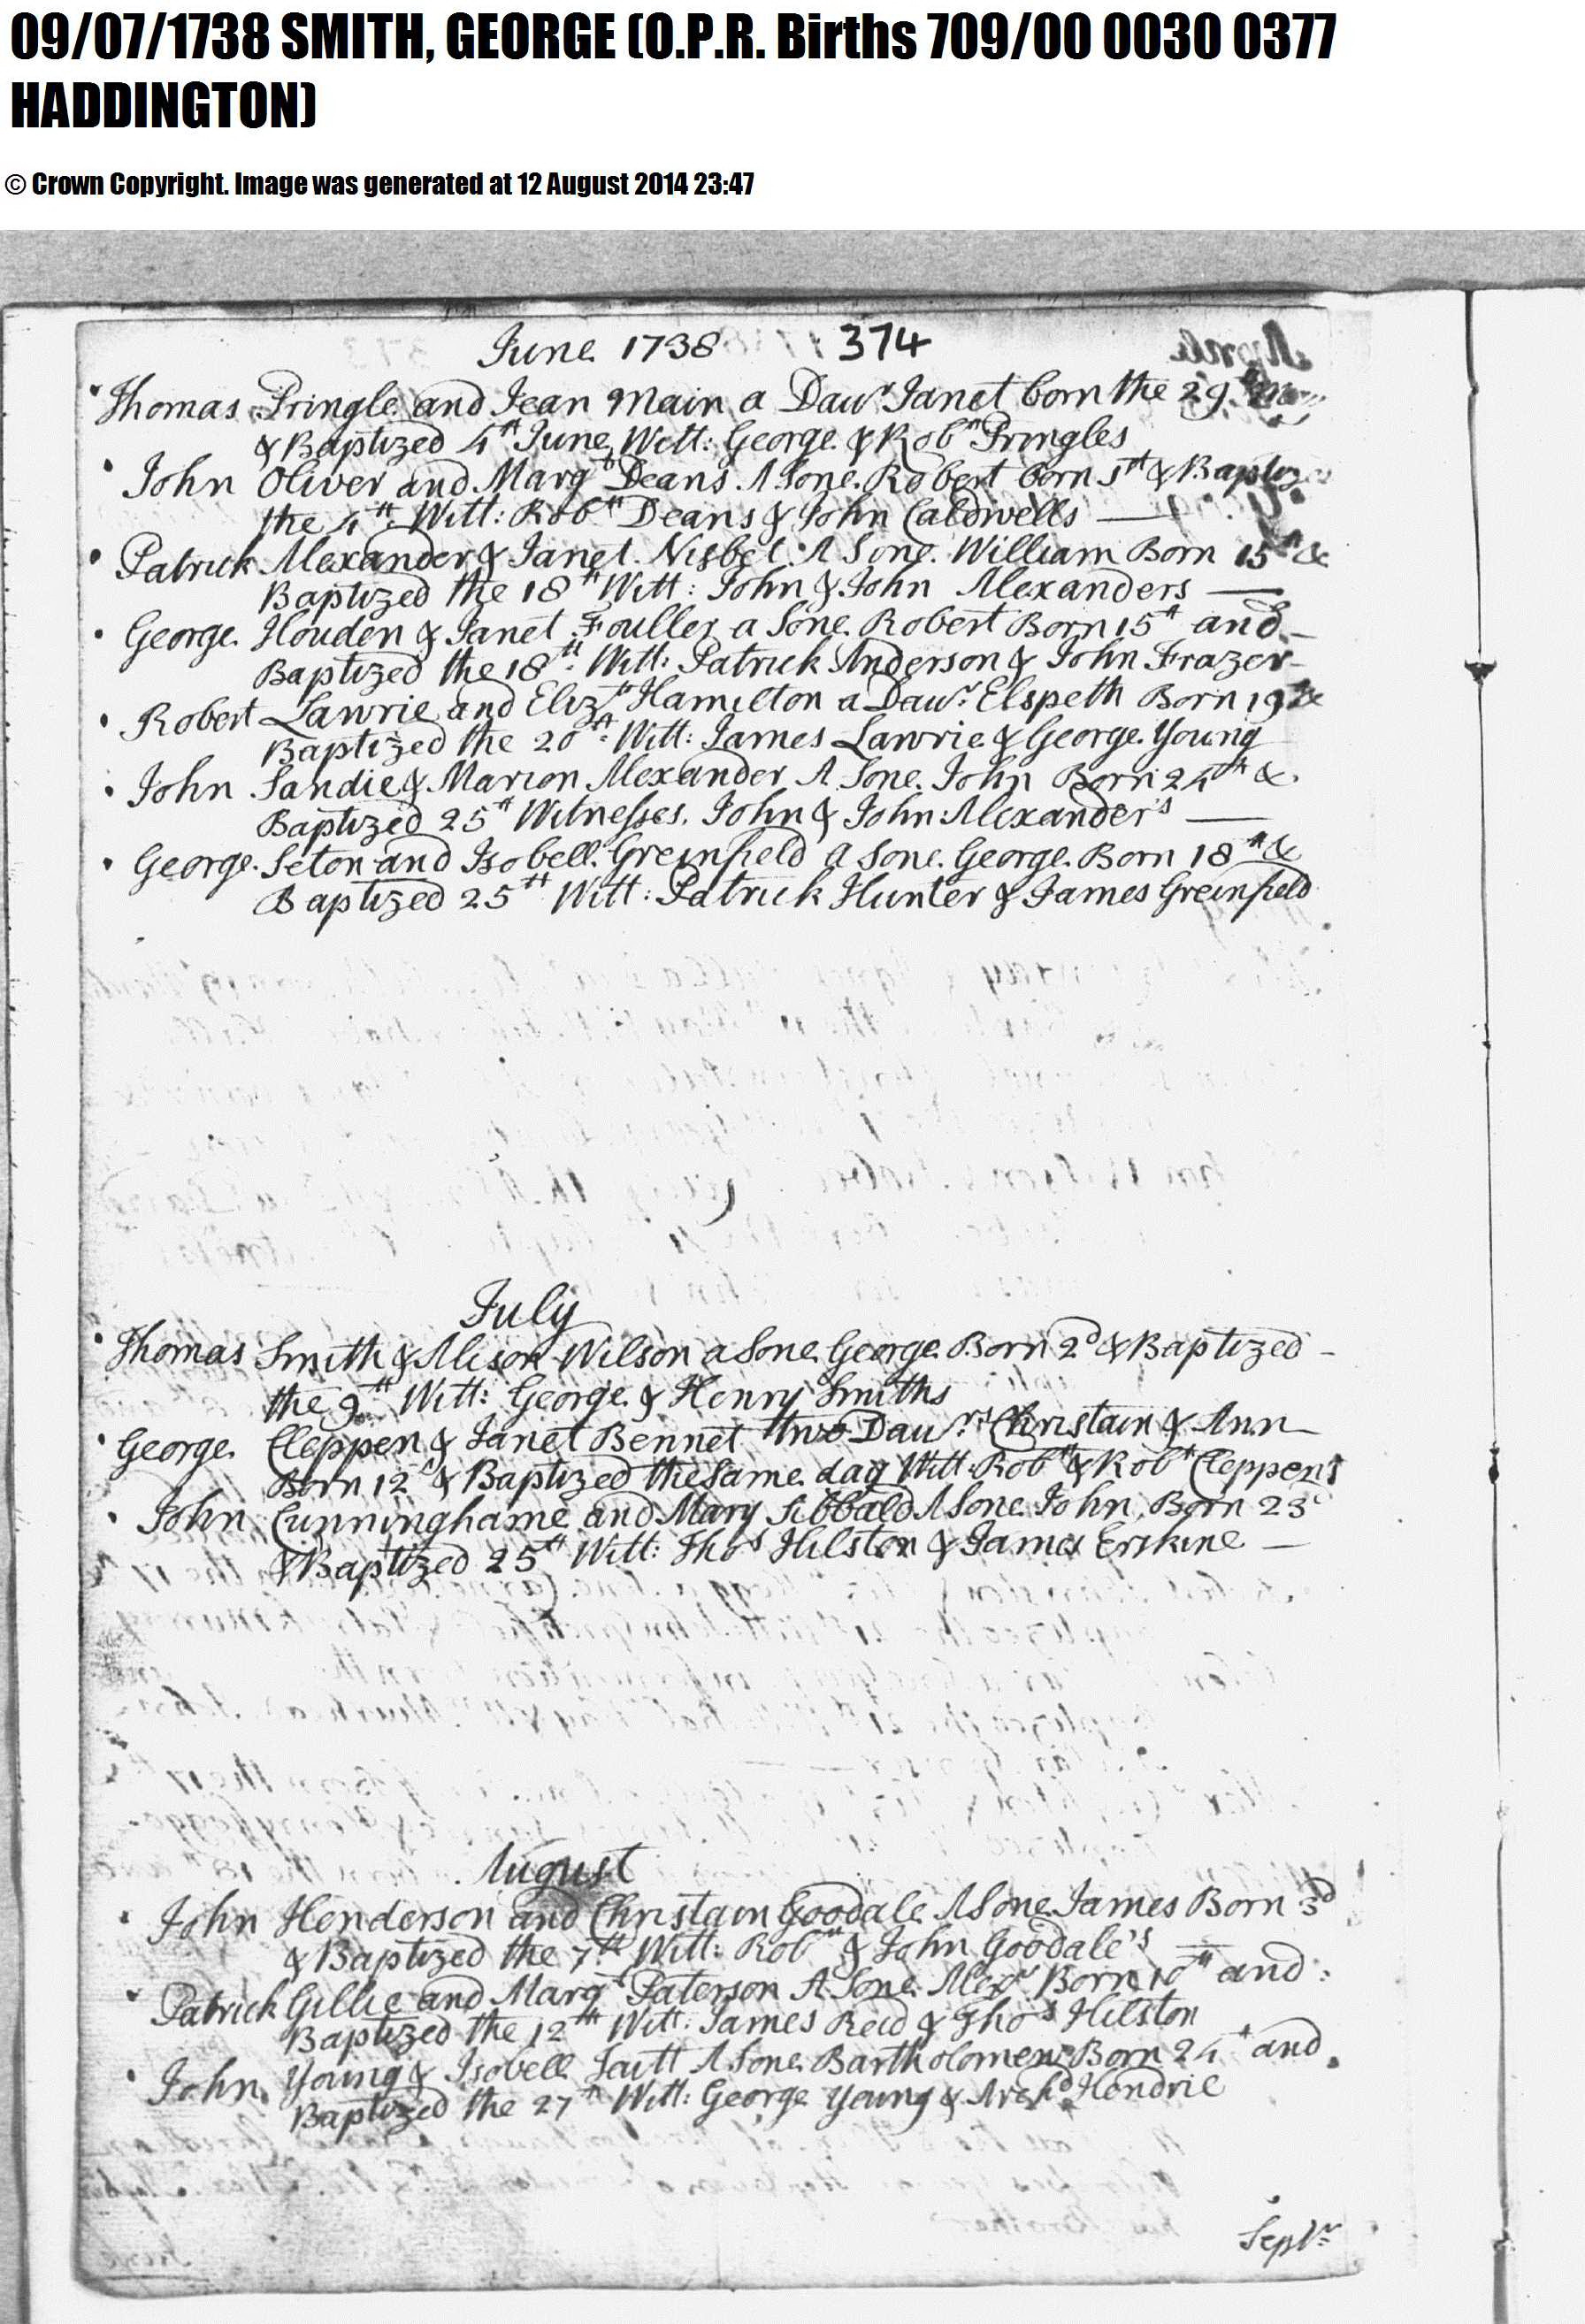 09/07/1738 SMITH, GEORGE (O.P.R. Births 709/00 0030 0377
HADDINGTON)
© Crown Copyright. Image was generated at 12 August 2014 23:47
June 1738 374
Thomas Pringle and Jean Main a Dawr Janet born the 29th
& Baptized 4th June Witt: George & Robtt Pringles
John Oliver and Margt Deans A Sone Robert born 1st & Baptiz
the 4th Witt: Robtt Deans & John Caldwells
Patrick Alexander & Janet Nisbet A Sone William Born 15th &
Baptized the 18th Witt: John & John Alexanders
George Houden & Janet Fouller a Sone Robert Born 15th and
Baptized the 18th Witt: Patrick Anderson & John Frazer
Robert Lawrie and Elizth Hamilton a Dawr: Elspeth Born 19th &
Baptized the 20th Witt: James Lawrie & George Young
John Sandie & Marion Alexander A Sone John Born 24th &
Baptized 25th Witnesses John & John Alexander's
George Seton and Isobell Greinfield a Sone George Born 18th &
Baptized 25th Witt: Patrick Hunter & James Greinfield
July
Thomas Smith & Alison Wilson a Sone George Born 2d & Baptized
the 9th Witt: George & Henry Smiths
George Cleppen & Janet Bennet two Dawrs: Christain & Ann
Born 12th & Baptized the same day Witt: Robtt & Robtt Cleppens
John Cunninghame and Mary Sibbald A Sone John Born 23d
& Baptized 25th Witt: Thos Hilston & James Erskine
August
John Henderson and Christain Goodale A Sone James Born 3d
& Baptized the 7th Witt: Robtt & John Goodale's
Patrick Gillie and Margt Paterson A Sone Alexr Born 10th and
Baptized the 12th Witt: James Reid & Thos Hilston
John Young & Isobell Scutt A Sone Bartholomew Born 24th and
Baptized the 27th Witt: George Young & Archd Hendrie
Septr